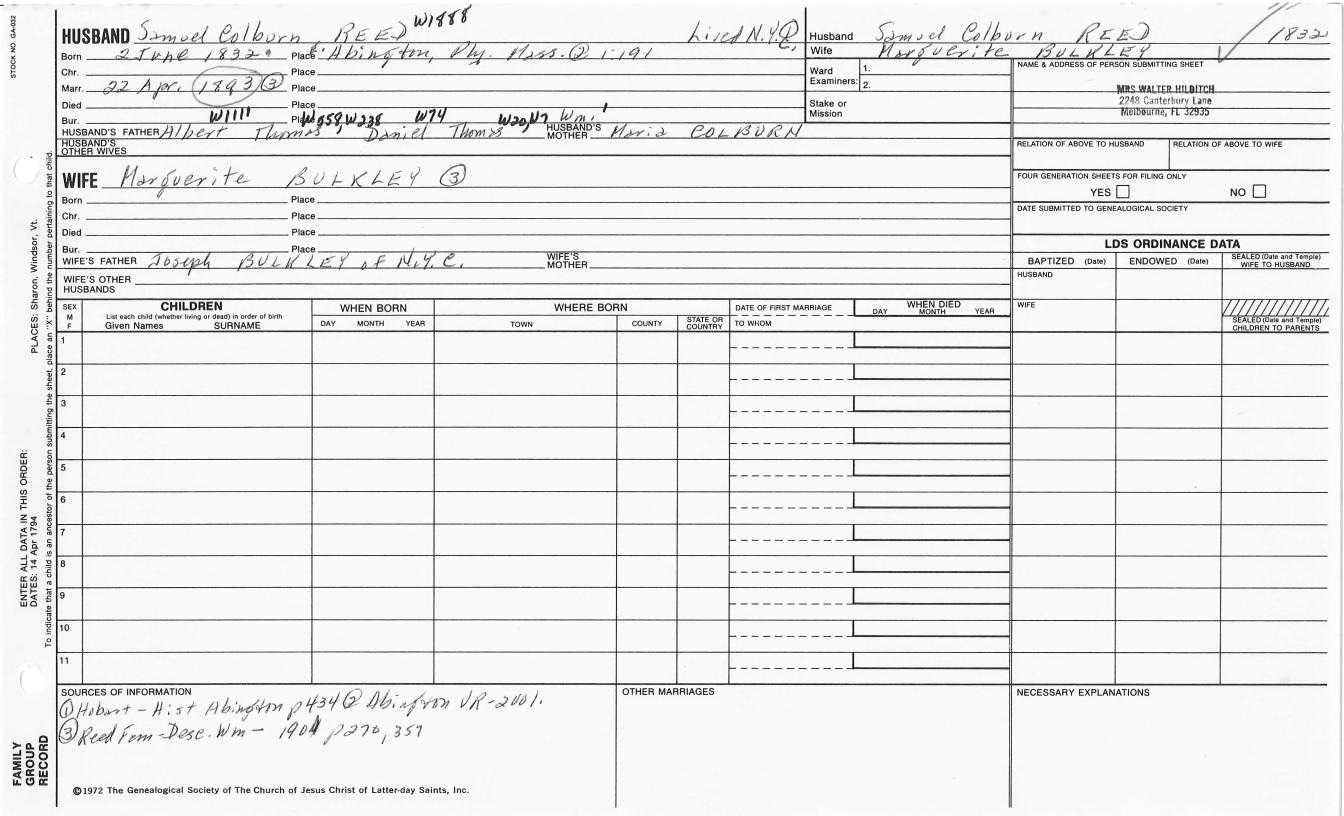 STOCK NO. GA-032
W1888
HUSBAND Samuel Colburn REED Lived N.Y.C.
Born 2 June 1832 Place Abington, Ply. Mass. ② 1:191
Chr. Place
Marr. 22 Apr. 1893 ③ Place
Died Place
Bur. W1111 Place W558, W238 W74 W20, W7 Wm. 1
HUSBAND'S FATHER Albert Thomas, Daniel Thomas HUSBAND'S MOTHER Maria COLBURN
HUSBAND'S OTHER WIVES
WIFE Marguerite BULKLEY ③
Born Place
Chr. Place
Died Place
Bur. Place
WIFE'S FATHER Joseph BULKLEY of N.Y.C. WIFE'S MOTHER
WIFE'S OTHER HUSBANDS
Husband Samuel Colburn REED 1832
Wife Marguerite BULKLEY
Ward Examiners: 1.
2.
Stake or Mission
NAME & ADDRESS OF PERSON SUBMITTING SHEET
MRS WALTER HILDITCH
2248 Canterbury Lane
Melbourne, FL 32935
RELATION OF ABOVE TO HUSBAND RELATION OF ABOVE TO WIFE
FOUR GENERATION SHEETS FOR FILING ONLY
YES NO
DATE SUBMITTED TO GENEALOGICAL SOCIETY
LDS ORDINANCE DATA
BAPTIZED (Date) ENDOWED (Date) SEALED (Date and Temple) WIFE TO HUSBAND
HUSBAND
WIFE
SEALED (Date and Temple) CHILDREN TO PARENTS
SEX M F
CHILDREN
List each child (whether living or dead) in order of birth
Given Names SURNAME
WHEN BORN
DAY MONTH YEAR
WHERE BORN
TOWN COUNTY STATE OR COUNTRY
DATE OF FIRST MARRIAGE
TO WHOM
WHEN DIED
DAY MONTH YEAR
1
2
3
4
5
6
7
8
9
10
11
SOURCES OF INFORMATION
① Hobart - Hist Abington p434 ② Abington VR-2001.
③ Reed Fam - Desc. Wm - 1901 p270, 359
OTHER MARRIAGES
NECESSARY EXPLANATIONS
©1972 The Genealogical Society of The Church of Jesus Christ of Latter-day Saints, Inc.
PLACES: Sharon, Windsor, Vt.
ENTER ALL DATA IN THIS ORDER:
DATES: 14 Apr 1794
To indicate that a child is an ancestor of the person submitting the sheet, place an "X" behind the number pertaining to that child.
FAMILY
GROUP
RECORD